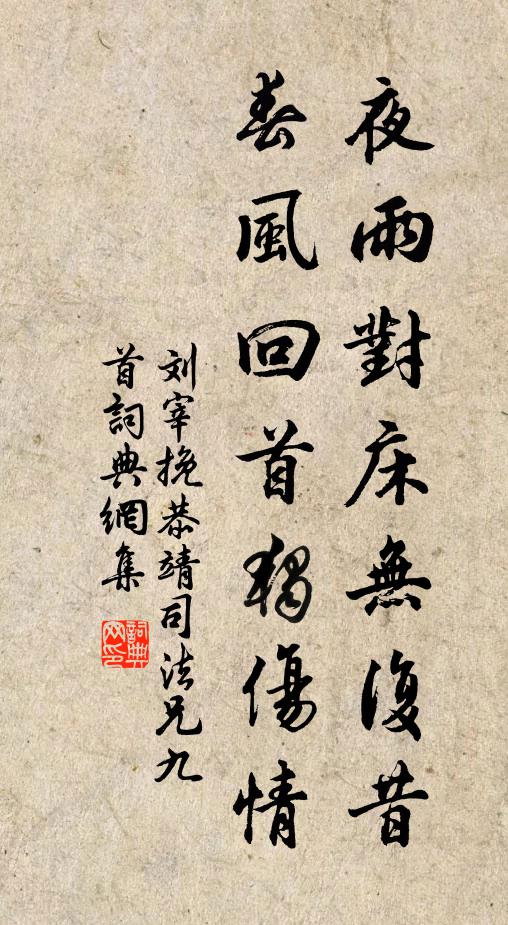 夜雨對床無復昔
春風回首獨傷情
刘宰挽恭靖司法兄九
首詞典網集
詞典
网印